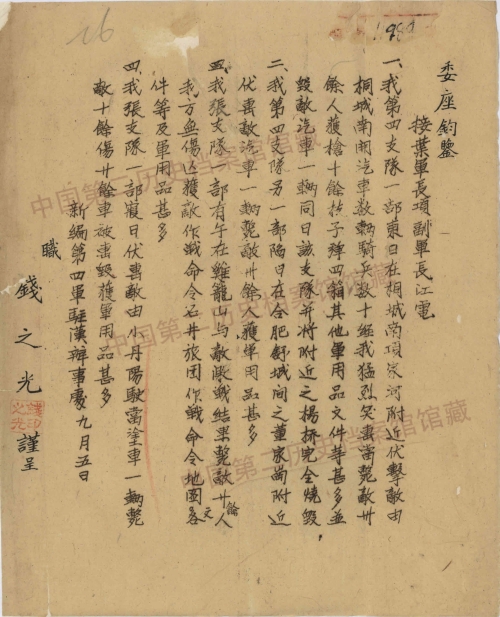 16
委座鈞鑒
接葉軍長項副軍長江電
一、我第四支隊一部東日在桐城南項家河附近伏擊敵由
桐城南開汽車數輛騎兵數十經我猛烈突擊當斃敵卅
餘人獲槍十餘枝子彈四箱其他軍用品文件等甚多並
毀敵汽車一輛同日該支隊並將附近之楊橋完全燒毀
二、我第四支隊另一部陽日在合肥舒城間之董家崗附近
伏擊敵汽車一輛斃敵卅餘人獲軍用品甚多
三、我張支隊一部有午在雞籠山與敵激戰結果斃敵廿餘人
我方無傷亡獲敵作戰命令石井旅團作戰命令地圖各文
件等及軍用品甚多
四、我張支隊一部寢日伏擊敵由小丹陽駛當塗車一輛斃
敵十餘傷廿餘車被擊毀獲軍用品甚多
新編第四軍駐漢辦事處九月五日
職
錢之光謹呈
錢之光印
中国第二历史档案馆馆藏
中国第二历史档案馆馆藏
中国第二历史档案馆馆藏